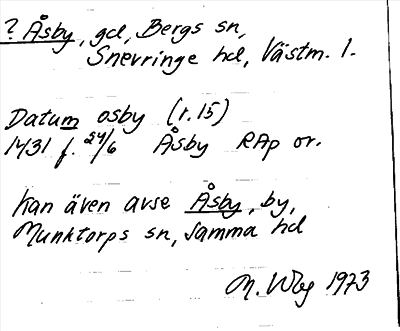 ? Åsby, gd, Bergs sn,
Snevringe hd, Västm. l.
Datum osby (r. 15)
1431 f. 24/6 Åsby RAp or.
Kan även avse Åsby, by,
Munktorps sn, samma hd
M. Wbg 1973